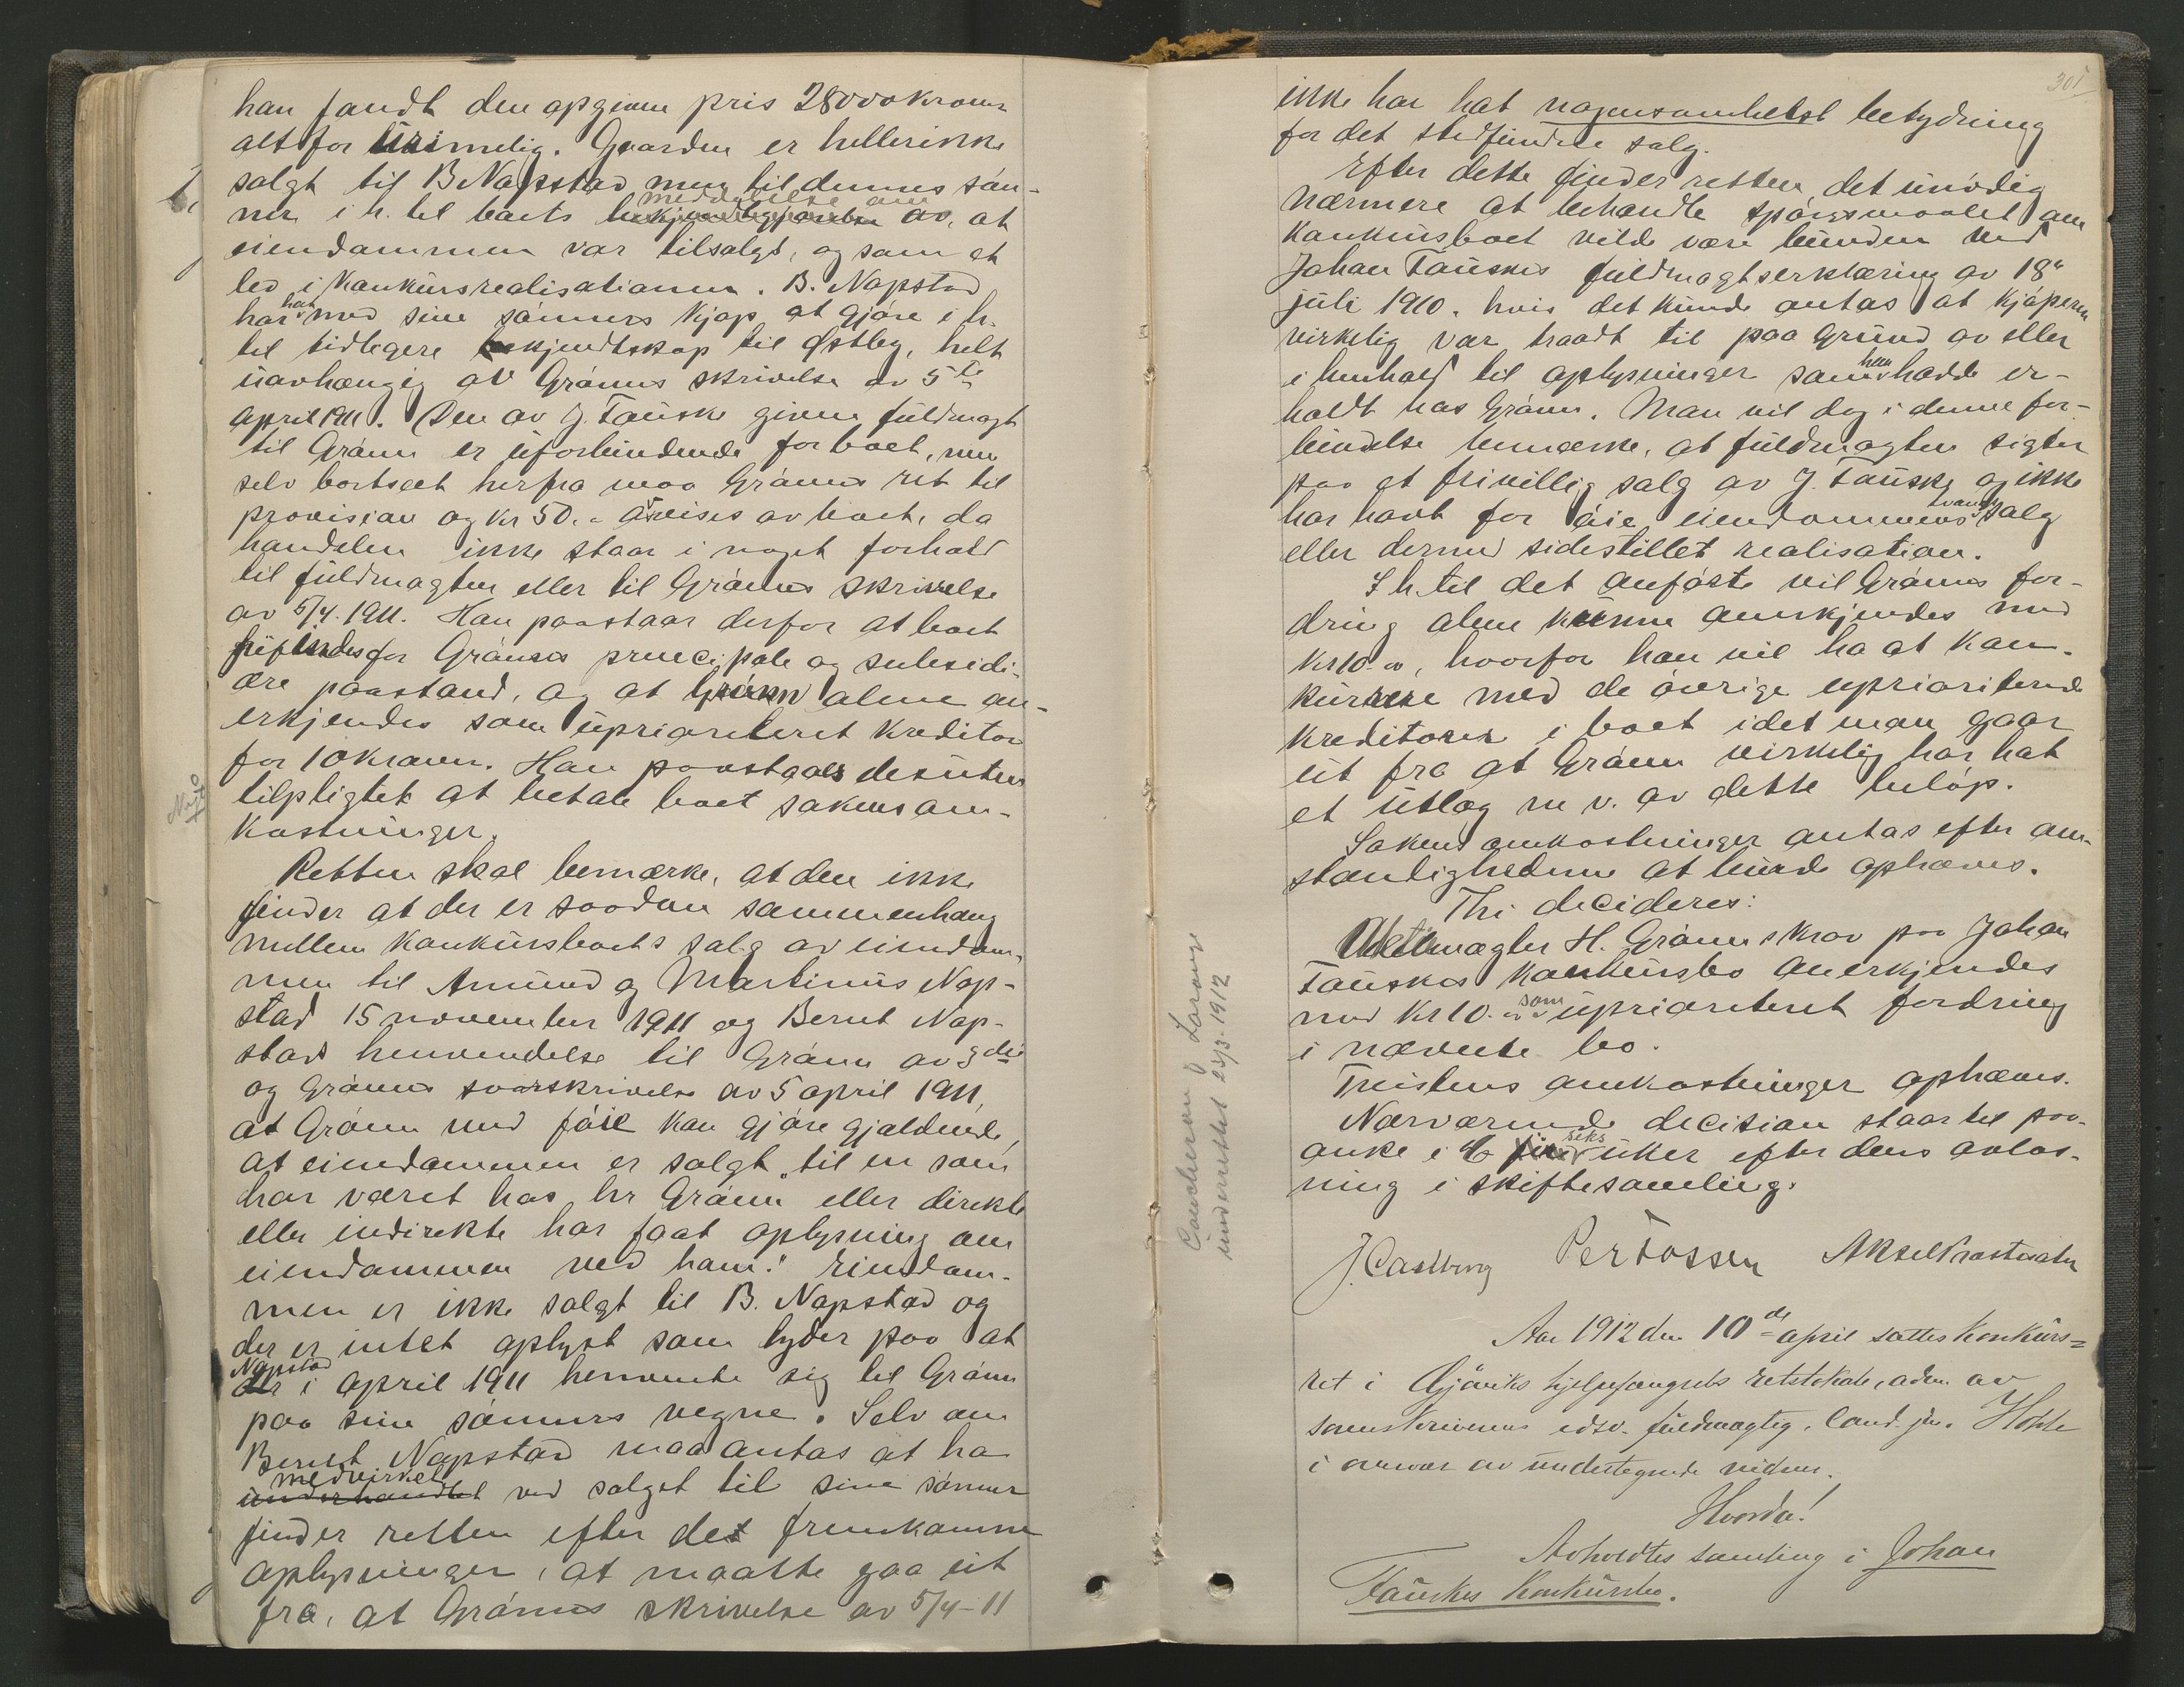 han fandt den opgivne pris 28000 kroner
altfor urimelig. Gaarden er heller ikke
salgt til B Napstad men til dennes søn-
ner i h. til boets meddelelse om av, at
eiendommen var tilsalgs, og som et
led i konkursrealisationen. B. Napstad
har hat med sine sønners kjøp at gjøre i h.
til tidligere bekjendtskap til Østby, helt
uavhængig av Grønns skrivelse av 5te
april 1911. Den av J. Fauske givne fuldmagt
til Grønn er uforbindende for boet, men
selv bortseet herfra maa Grønns ret til
provision og kr 50.- avvises av boet, da
handelen ikke staar i noget forhold
til fuldmagten eller til Grønns skrivelse
av 5/4. 1911. Han paastaar derfor at boet
frifindes for Grønns principale og subsidi-
ære paastand, og at Grønn alene an-
erkjendes som uprioriteret kreditor
for 10 kroner. Han paastaaes desuten
tilpligtet at betale boet sakens om-
kostninger.
Retten skal bemærke, at den ikke
finder at der er saadan sammenhæng
mellem konkursboets salg av eiendom-
men til Amund og Martinius Nap-
stad 15 november 1911 og Bernt Nap-
stads henvendelse til Grønn av 3die
og Grønns svarskrivelse av 5 april 1911,
at Grønn med føie kan gjøre gjældende,
at eiendommen er solgt "til en som
har været hos hr Grønn eller direkte
eller indirekte har faat oplysning om
eiendommen ved ham." Eiendom-
men er ikke solgt til B. Napstad og
der er intet oplyst som tyder paa at
Napstad i april 1911 henvendte sig til Grønn
paa sine sønners vegne. Selv om
Bernt Napstad maa antas at ha
medvirket underhandlet ved salget til sine sønner
finder retten efter de fremkomne
oplysninger, at maatte gaa ut
fra, at Grønns skrivelse av 5/4-11
301
ikke har hat nogensomhelst betydning
for det stedfundne salg.
Efter dette finder retten det unødig
nærmere at behandle spørgsmaalet om
konkursboet vilde være bunden ved
Johan Fauskes fuldmagtserklæring av 18"
juli 1910. hvis det kunde antas at kjøperen
virkelig var traadt til paa grund av eller
i henhold til oplysninger som han hadde er-
holdt hos Grønn. Man vil dog i denne for-
bindelse bemærke, at fuldmagten sigter
paa et frivillig salg av J. Fauske og ikke
har havt for øie eiendommens tvangssalg
eller dermed sidestillet realisation.
I h. til det anførte vil Grønns for-
dring alene kunne anerkjendes med
kr 10.00, hvorfor han vil ha at kon-
kurrere med de øvrige uprioriterede
kreditorer i boet idet man gaar
ut fra at Grønn virkelig har hat
et utlæg m v. av dette beløp.
Sakens omkostninger antas efter om-
stændighederne at burde ophæves.
Thi decideres:
H. Grønns krav paa Johan
Fauskes konkursbo anerkjendes
med kr 10.00 som uprioriteret fordring
i nævnte bo.
Tvistens omkostninger ophæves.
Nærværende decision staar til paa-
anke i 6 seks uker efter dens avlæs-
ning i skiftesamling.
J. Castberg Per Fossen Aksel
Aar 1912 den 10de april sattes konkurs=
ret i Gjøviks hjelpefængsels retslokale, adm. av
sorenskriverens edsv. fuldmægtig, cand. jur. Holte
i overvær av undertegnede vidner.
Hvorda!
Avholdtes samling i Johan
Fauskes Konkursbo.
underrettet 23/3-1912